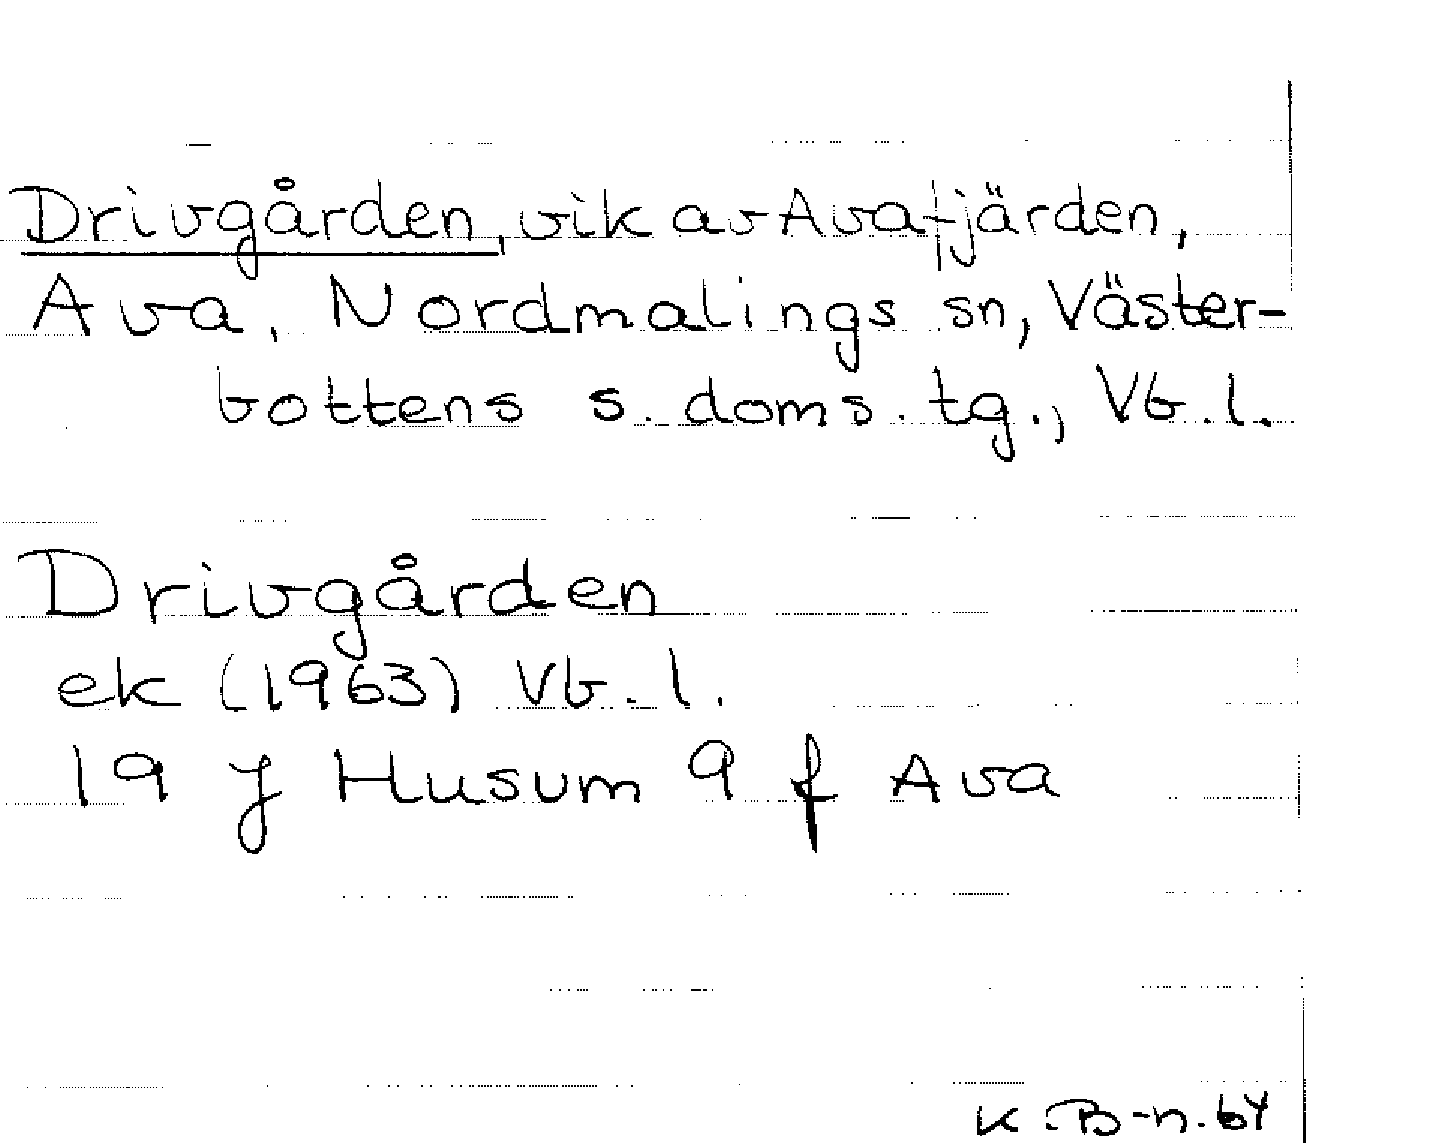 Drivgården, vik av Avafjärden,
Ava, Nordmalings sn, Väster-
bottens s. doms. tg., Vb. l.
Drivgården
ek (1963) Vb. l.
19 J Husum 9 f Ava
K.B-n. 64